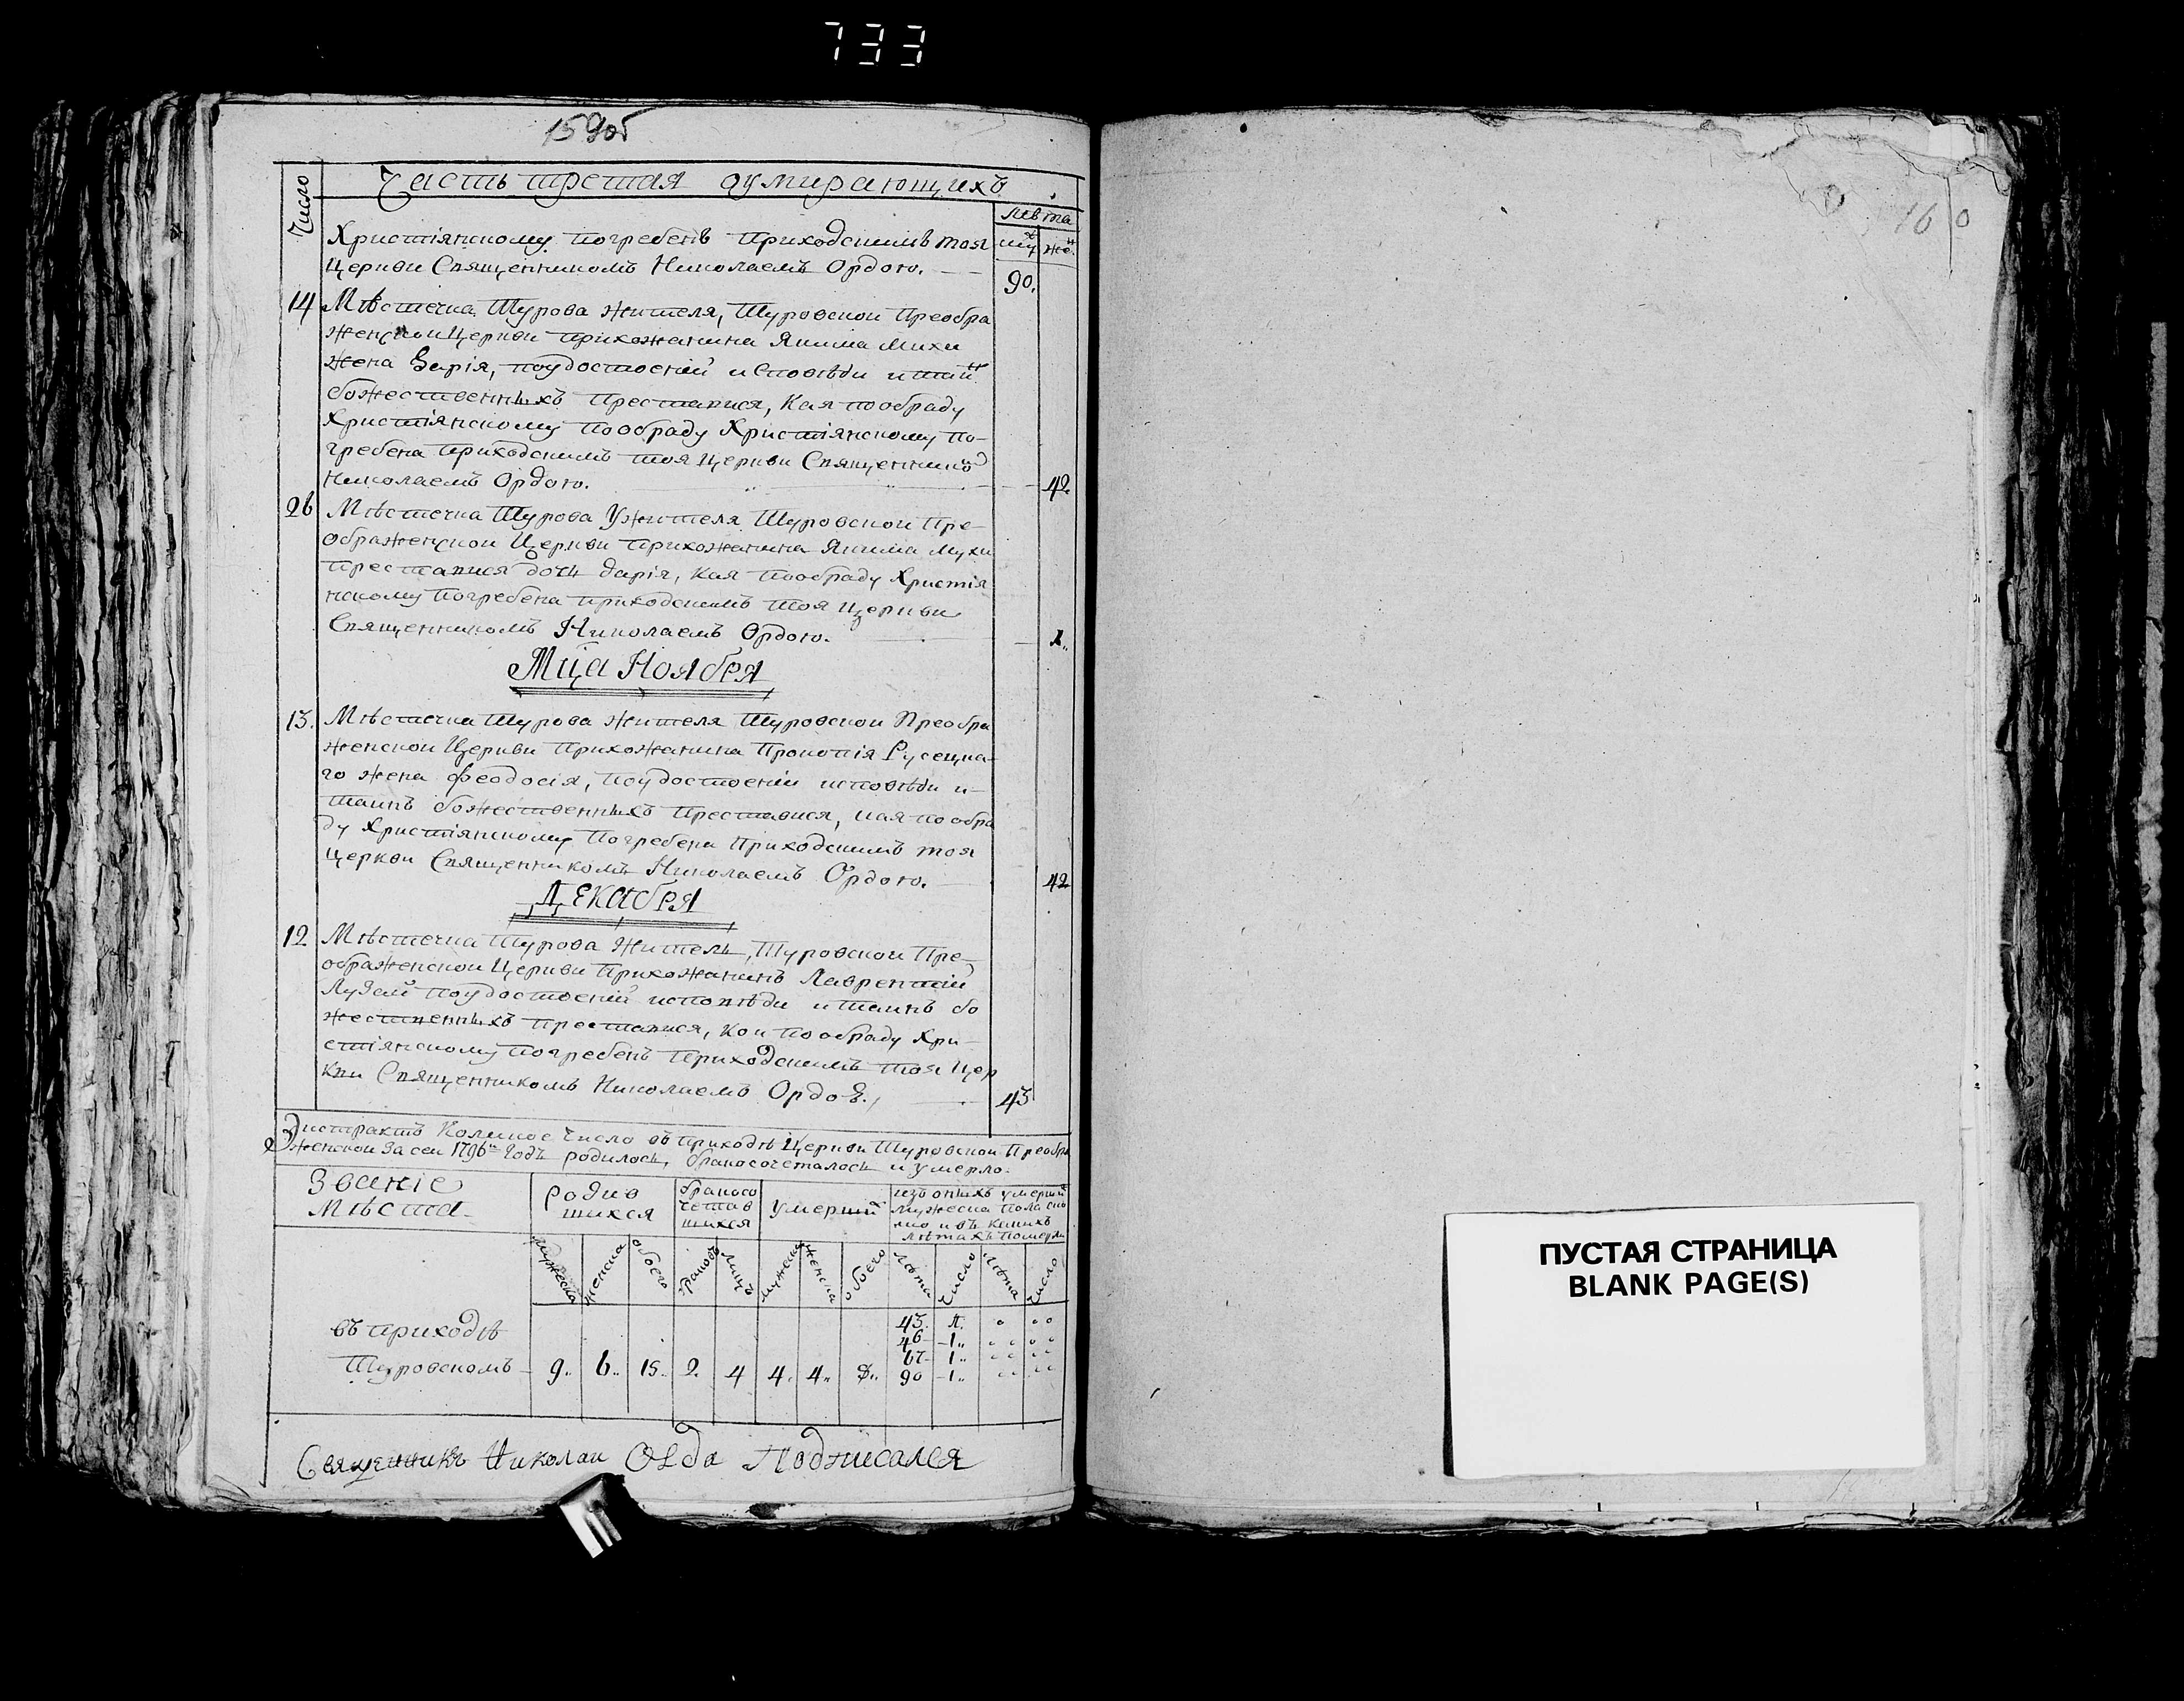 733
159об
Число
Часть третая оумирающихъ
лѣта
муж
жен
Христіянскому погребенъ приходскимъ тоя
Церкви Священникомъ Николаемъ Ордою.
90.
14 Мѣстечка Щурова жителя, Щуровской Преобра
женской Церкви прихожанина Якима Мухи
жена Дарія, поудостоеній исповѣди и таин
божественныхъ преставися, кая пообраду
Христіянскому пообраду Христіянскому по-
гребена приходскимъ тоя Церкви Священнико
Николаемъ Ордою. 42
26 Мѣстечка Щурова Ужителя Щуровской Пре-
ображенской Церкви прихожанина Якима Мухи
преставися дочь Дарія, кая пообраду Христія
нскому погребена приходскимъ тоя Церкви
Священникомъ Николаемъ Ордою. 1..
Мца Ноября
13. Мѣстечка Щурова жителя Щуровской Преобра
женской Церкви прихожанина Прокопія Русецка-
го жена Феодосія, поудостоеніи исповѣди и-
таинъ божественныхъ преставися, кая пообра
ду Христіянскому погребена приходскимъ тоя
Церкви Священникомъ Николаемъ Ордою. 42
Декабря
12 Мѣстечка Щурова житель, Щуровской Пре-
ображенской Церкви прихожанинъ Лаврентій
поудостоеній исповѣди и таинъ бо
жественныхъ преставися, кои пообраду Хри-
стіянскому погребенъ приходскимъ тоя Цер
кви Священникомъ Николаемъ Ордоѣ., 43
Экстрактъ Коликое Число въ приходѣ Церкви Щуровской Преобра
женской за сей 1796й Годъ родилось, бракосочеталось и умерло.
Званіе
Мѣста
родив
шихся
бракосо
четав
шихся
умерший
изъ оныхъ умерший
мужеска пола ско
ко и въ какихъ
лѣтахъ померли
мужеска женска обоего браковъ лицъ мужеска женска обоего лѣта число лѣта число
въ приходѣ
Щуровскомъ 9.. 6.. 15.. 2. 4 4. 4.. 8..
43. 1.
46 1..
67 1..
90 1..
Священникъ Николаи Орда Подписался
160
ПУСТАЯ СТРАНИЦА
BLANK PAGE(S)